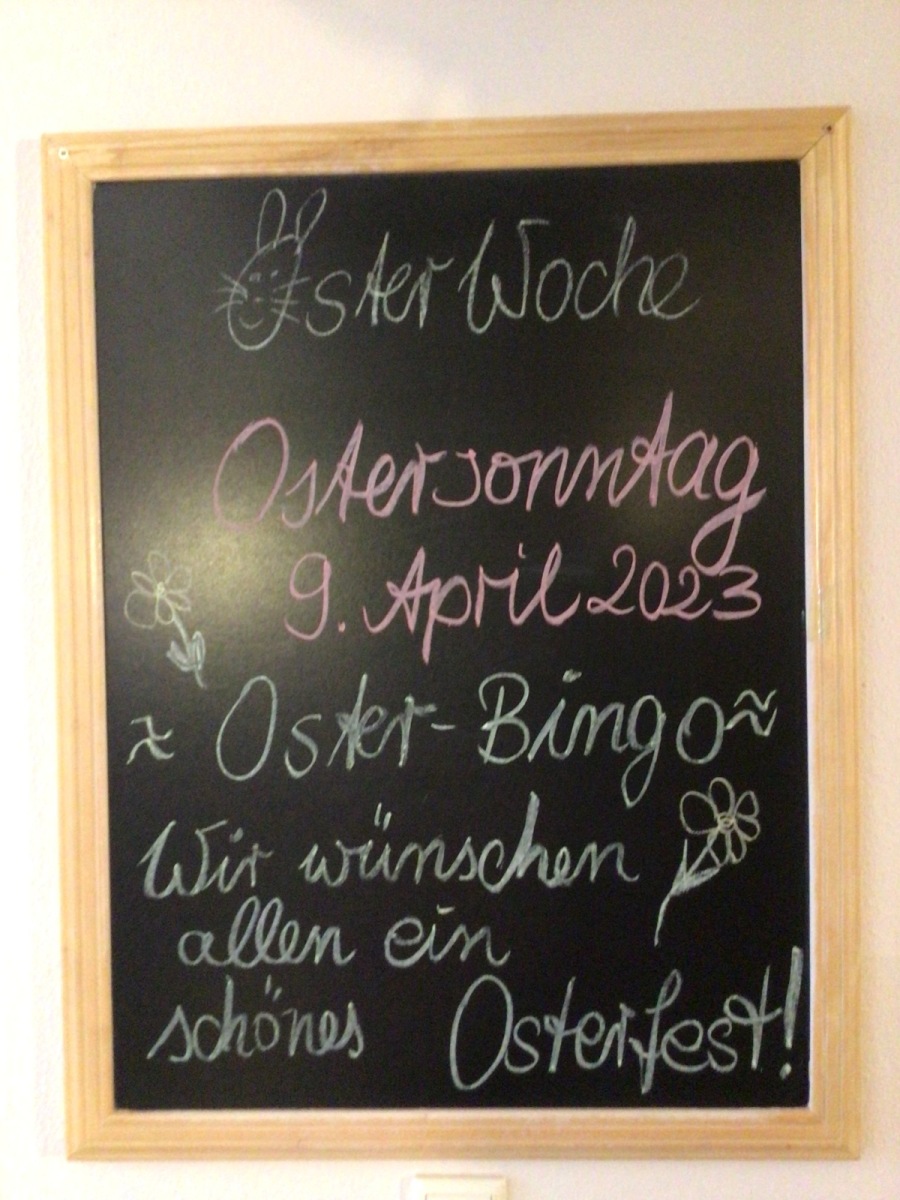 Oster Woche
Ostersonntag
9. April 2023
~ Oster-Bingo ~
Wir wünschen
allen ein
schönes Osterfest!